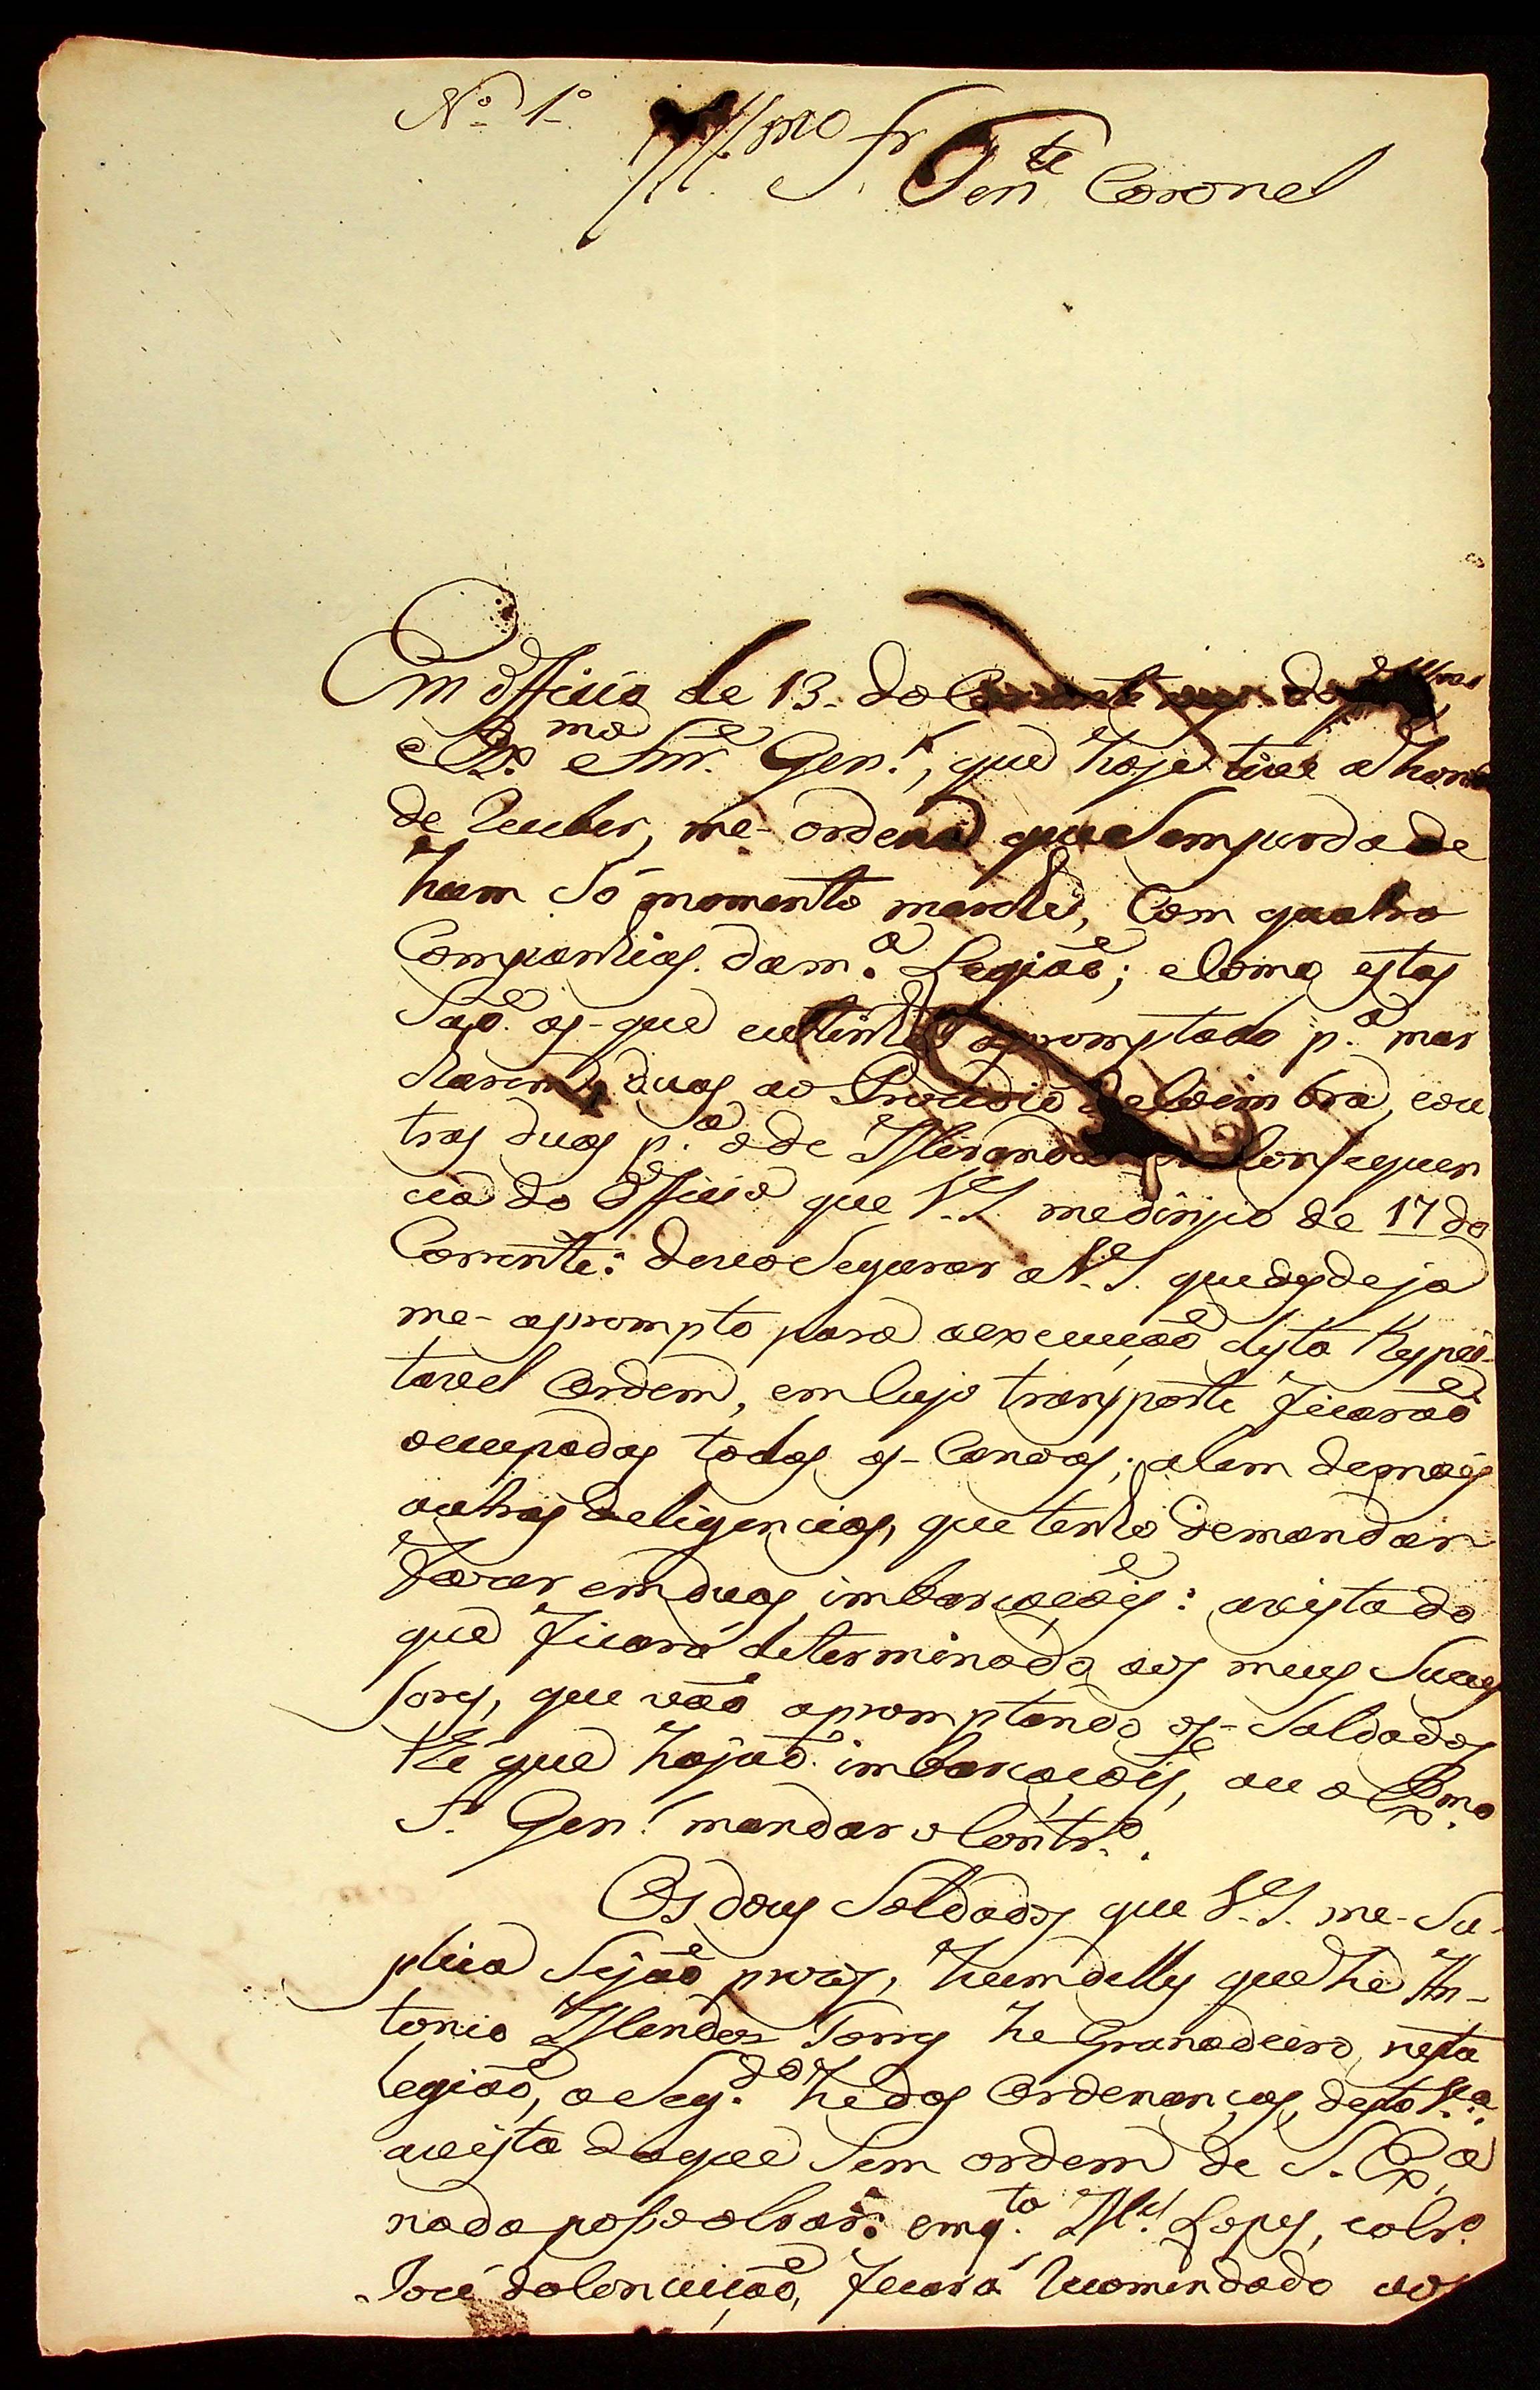 Nº 1º
Illmo Sr Tente Coronel
Em Officio de 13 do Corrente do Illmo
e Exmo Snr. Genl, que hoje tive a honra
de receber, me ordena que sem perda de
hum só momento marche, com quatro
Companhias da m.a Legiaõ; e como estas
saõ as que eu tinha apromptado p.a mar
charem, duas ao Prezidio de Coimbra, e ou
tras duas p.a o de Miranda em consequen
cia do Officio que V.S. me dirijio de 17 do
Corrente: devo segurar a V.S. que desde ja
me aprompto para a execuçaõ desta Respei-
tavel Ordem, em cujo transporte ficaraõ
occupadas todas as Canoas; alem de mais
outras deligencias, que tenho de mandar
fazer em duas imbarcaçoẽs: a vista do
que ficará determinado aos meus Suces
sores, que vaõ apromptando os Soldados
té que hajaõ imbarcaçoẽs, ou o Exmo
Sr Genl mandar o contr.o.
Os dous Soldados que V.S. me Su-
plica sejaõ prezos, hum delles que he An-
tonio Mendes Torres he Granadeiro nesta
Legiaõ, o Seg.do he das Ordenanças desta V.a:
a vista do que sem ordem de S. Ex.a
nada posso obrar: emq.to Mel Lopes, e o Cabr.
José da Conceiçaõ, ficará recomendado aos